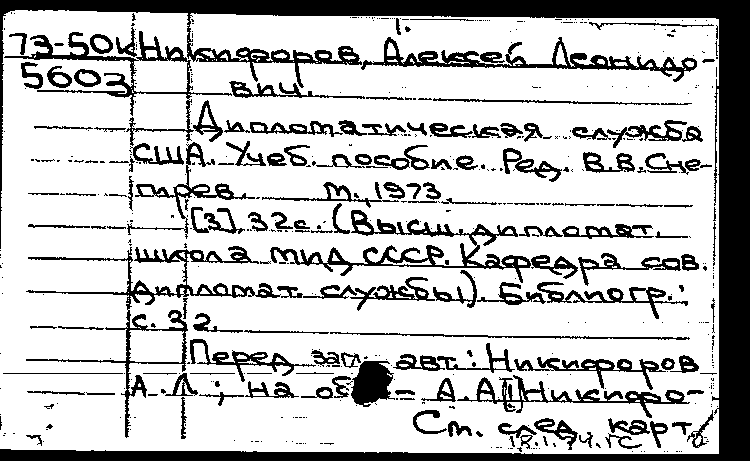 1.
73-50к Никифоров, Алексей Леонидо-
5603 вич.
Дипломатическая служба
США. Учеб. пособие. Ред. В.В.Сне-
гирев. М., 1973.
[3], 32с. (Высш. дипломат.
школа МИД СССР. Кафедра сов.
дипломат. службы). Библиогр.:
с. 32.
Перед загл. авт.: Никифоров
А.Л; на — А.А[!]Никифо-
См. след. карт.
18.1.74.